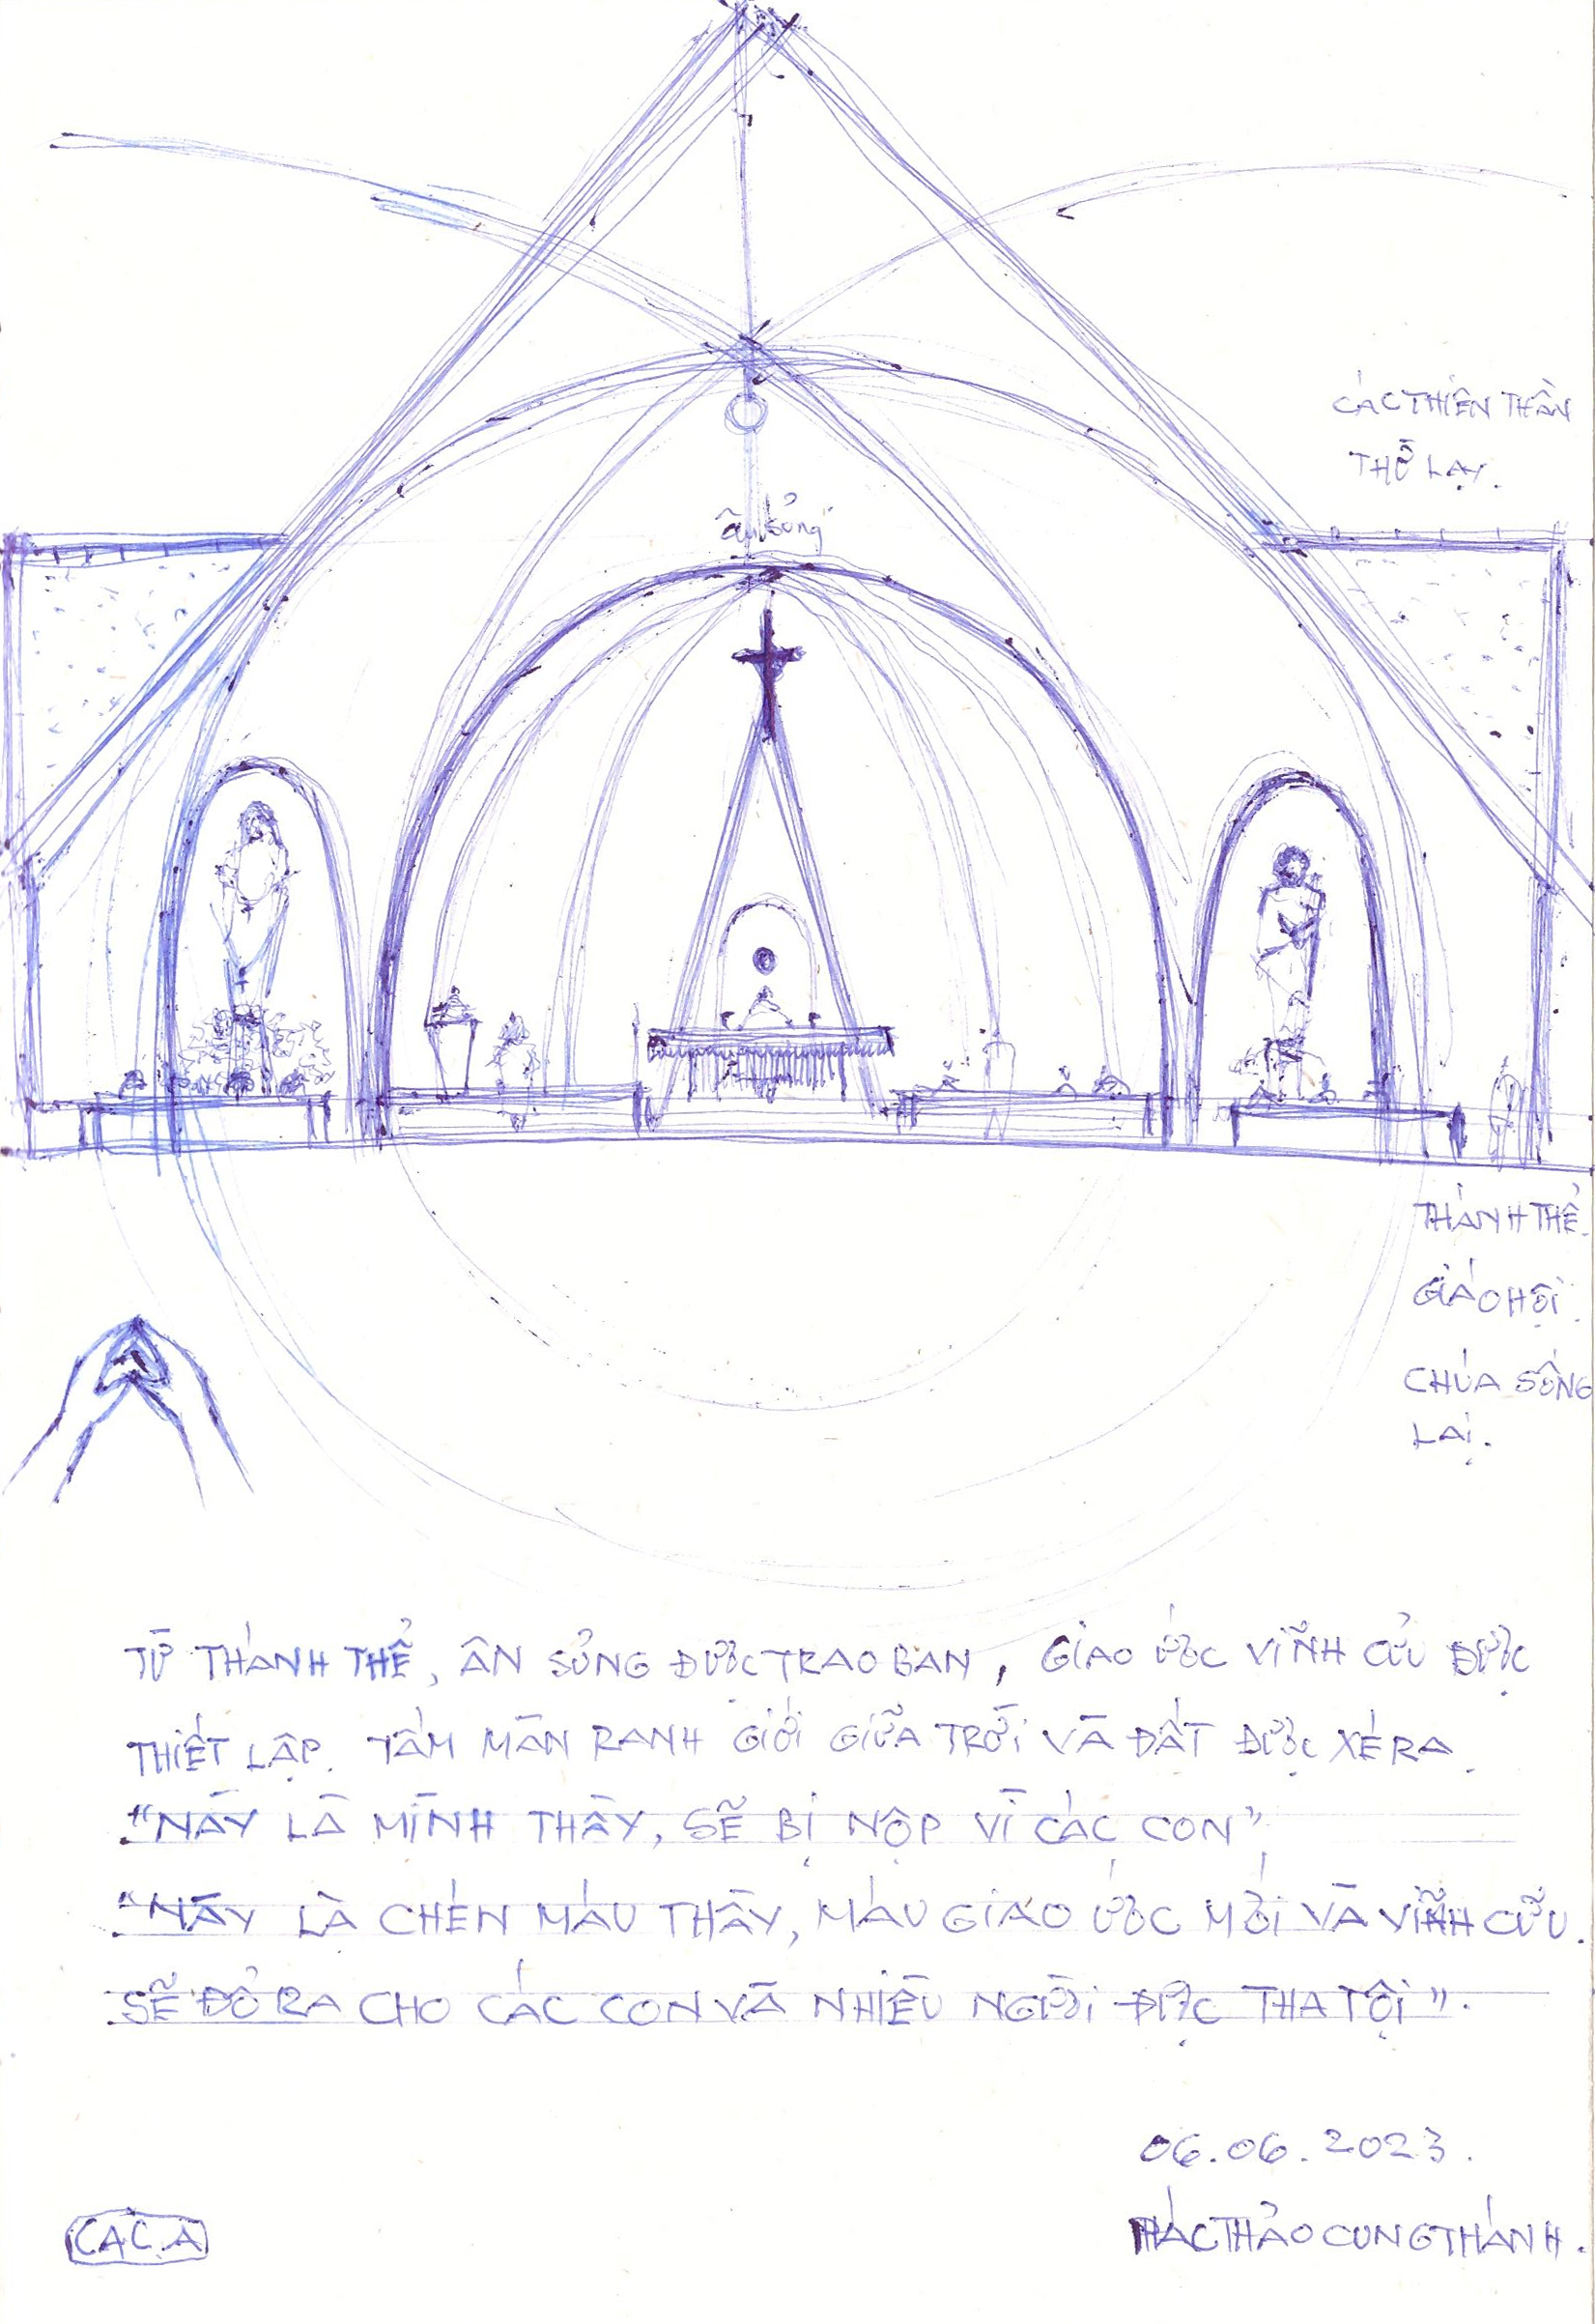 CÁC THIÊN THẦN
THỜ LẠY.
ân sủng
THÁNH THỂ.
GIÁO HỘI.
CHÚA SỐNG
LẠI.
TỪ THÁNH THỂ, ÂN SỦNG ĐƯỢC TRAO BAN, GIAO ƯỚC VĨNH CỬU ĐƯỢC
THIẾT LẬP. TẤM MÀN RANH GIỚI GIỮA TRỜI VÀ ĐẤT ĐƯỢC XÉ RA.
"NÀY LÀ MÌNH THẦY, SẼ BỊ NỘP VÌ CÁC CON"
"NÀY LÀ CHÉN MÁU THẦY, MÁU GIAO ƯỚC MỚI VÀ VĨNH CỮU.
SẼ ĐỔ RA CHO CÁC CON VÀ NHIỀU NGƯỜI ĐƯỢC THA TỘI".
06.06.2023.
PHÁC THẢO CUNG THÁNH.
CAC.A